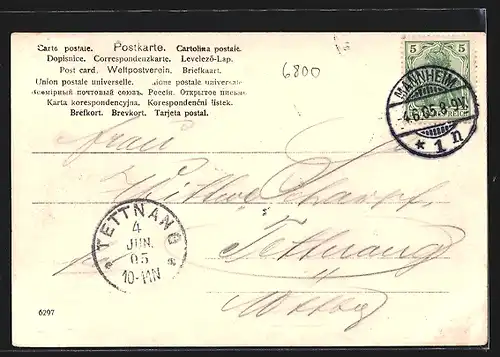 Carte postale. Postkarte. Cartolina postale.
Dopisnice. Correspondenzkarte. Levelező-Lap.
Post card. Weltpostverein. Briefkaart.
Union postale universelle. Unione postale universale
Всемірный почтовый союзъ. Россія. Открытое письмо.
Karta korespondencyjna. Korespondenční lístek.
Brefkort. Brevkort. Tarjeta postal.
6800
5 5
MANNHEIM
4.6.05.8-9V.
* 1 n
REICH
Frau
Wittwe
Tettnang
TETTNANG
4
JUN.
05
10-11N
Wttbg
6297